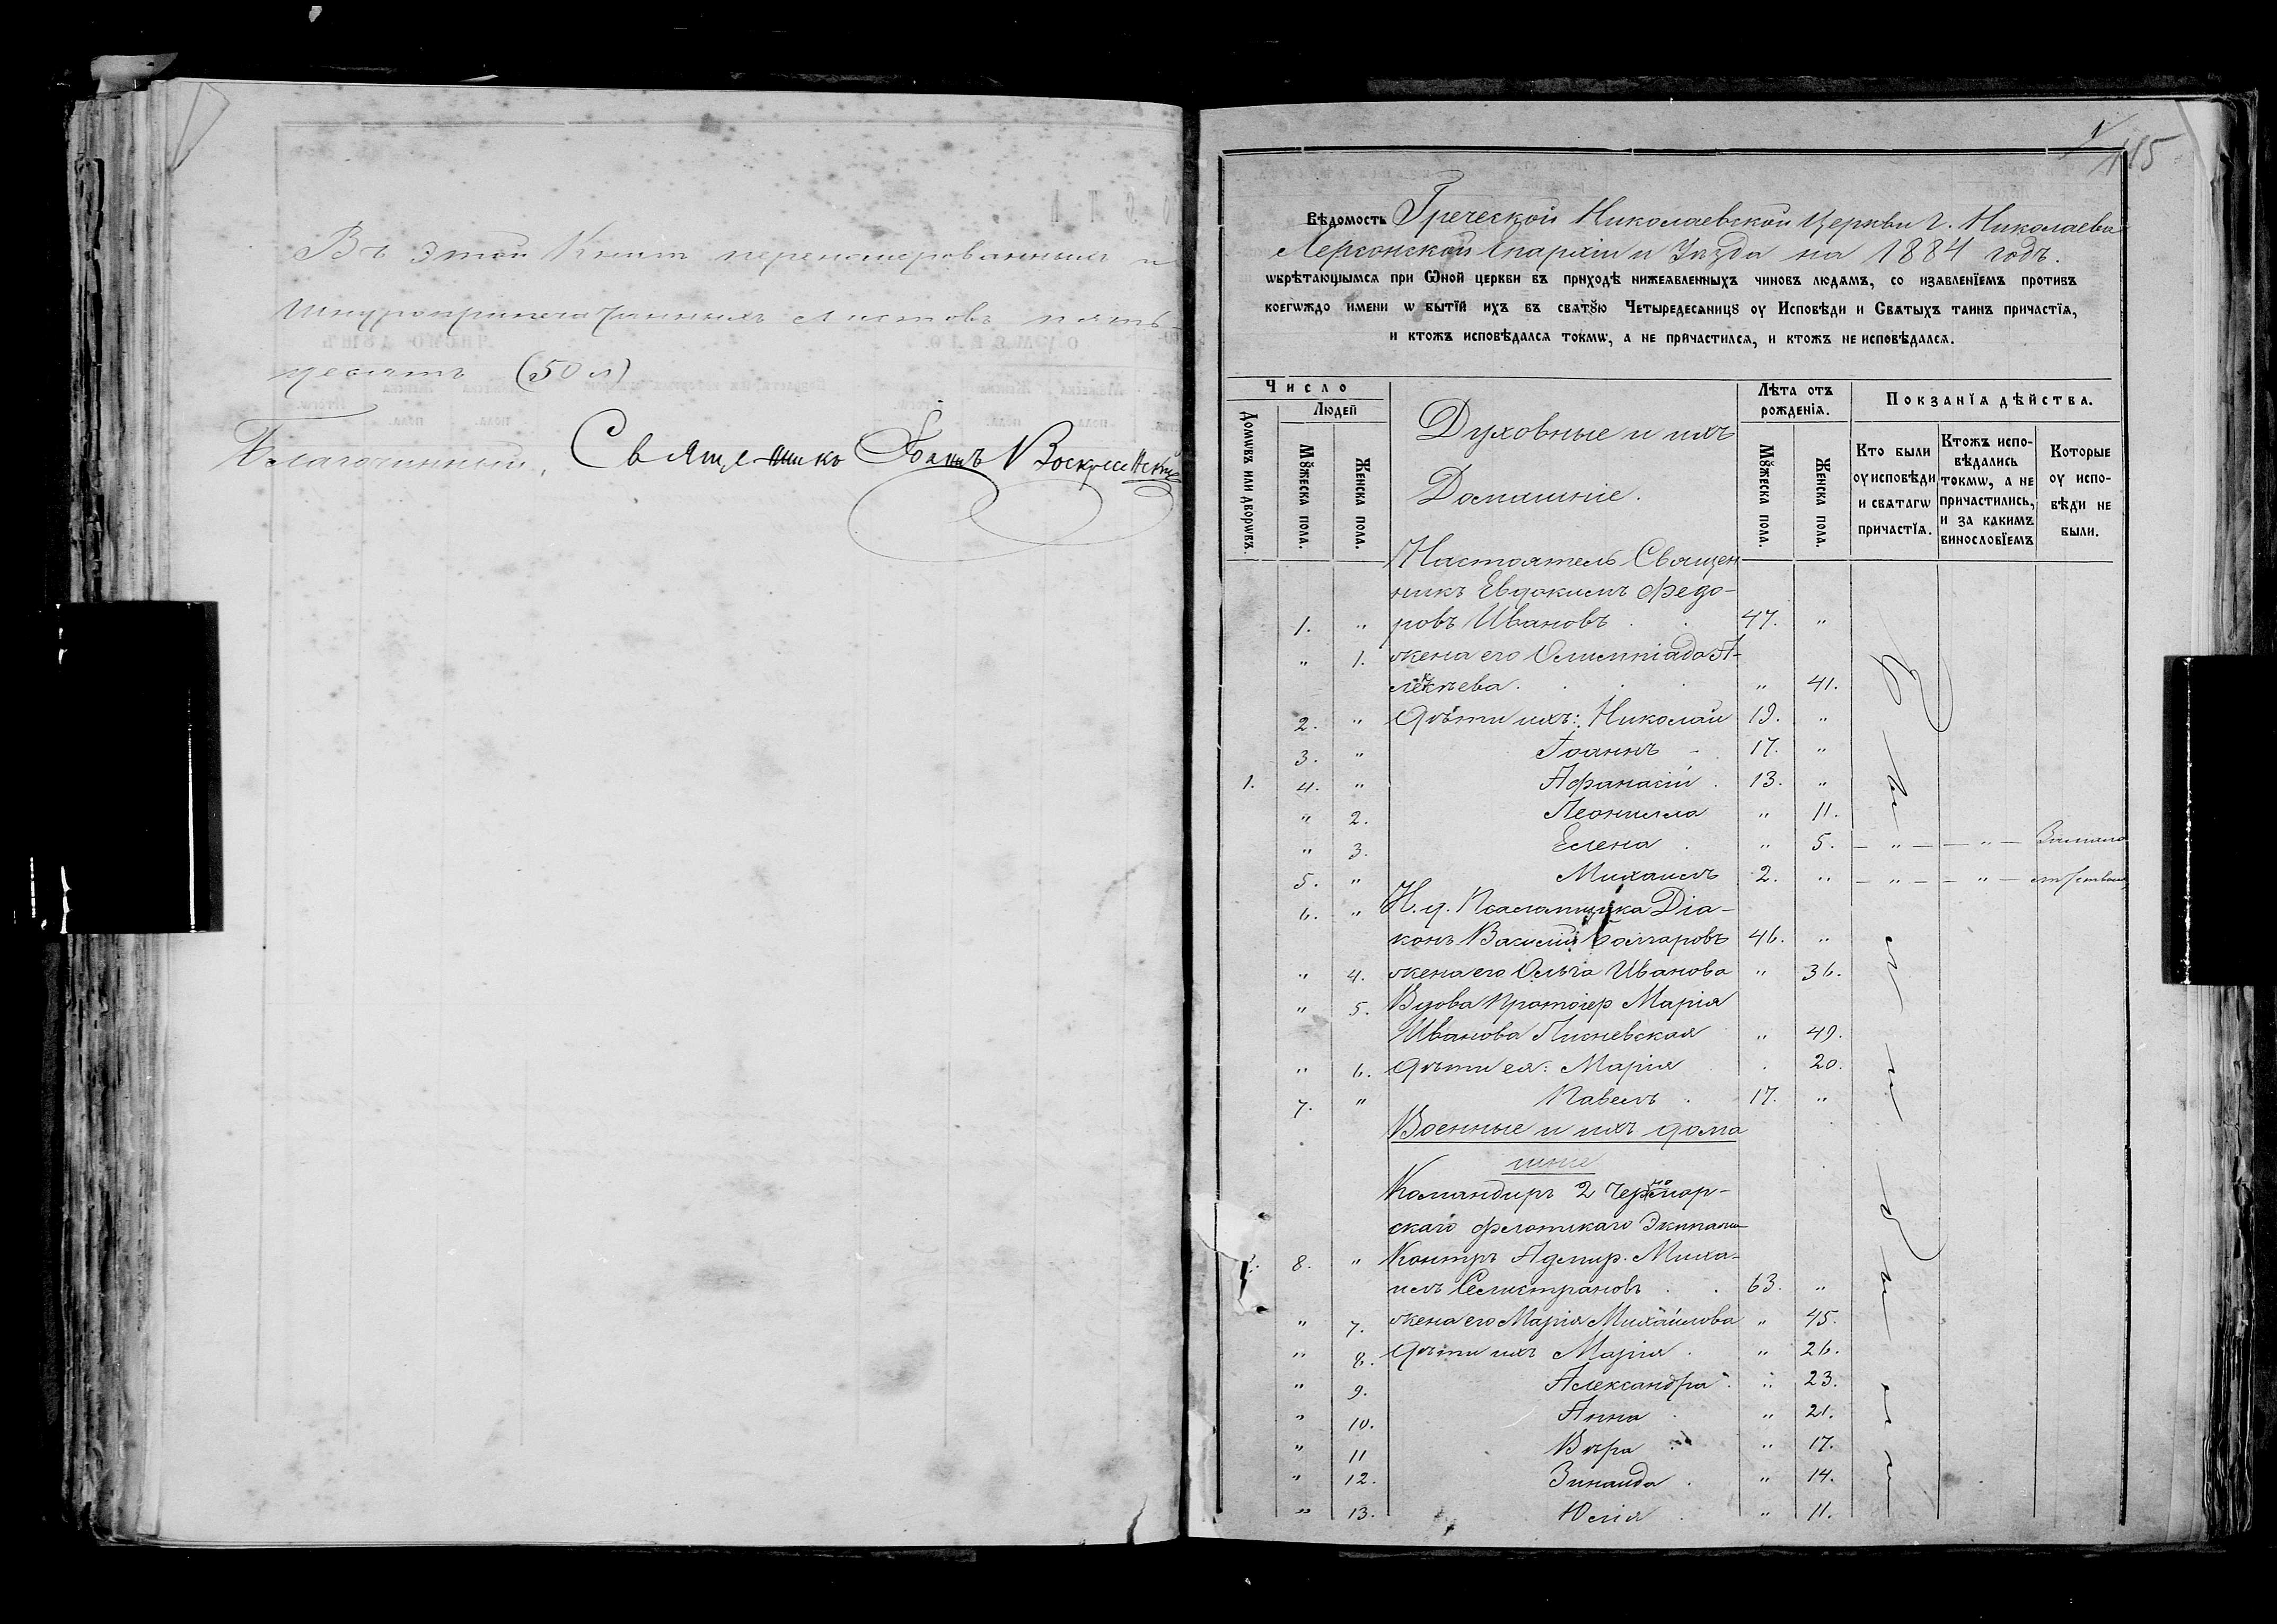 Въ этой Книгѣ перенумерованныхъ и
шнуроприпечатанныхъ листовъ пять-
десятъ (50 л)
Благочинный, Священникъ Іоаннъ Воскресенскій
1/
115
Вѣдомость Греческой Николаевской Церкви г. Николаева
Херсонской Епархіи и Уѣзда на 1884 годъ.
ѡбрѣтающымся при Ѡной церкви въ приходѣ нижеявленныхъ чиновъ людямъ, со изявленїемъ противъ
коегѡждо имени ѡ бытїй ихъ въ святꙋю Четыредесяницꙋ оу Исповѣди и Святыхъ таинъ причастїя,
и ктожъ исповѣдался токмѡ, а не причастился, и ктожъ не исповѣдался.
Число
Людей
Домѡвъ или дворѡвъ.
Мꙋжеска пола.
Женска пола.
Духовные и ихъ
Домашніе.
Лѣта отъ
рожденія.
Мꙋжеска пола.
Женска пола.
Покзанїя дѣйства.
Кто были
оу исповѣди
и святагѡ
причастїя.
Ктожъ испо-
вѣдались
токмѡ, а не
причастились,
и за какимъ
винословїемъ
Которые
оу испо-
вѣди не
были.
Настоятель Священ
никъ Евдокимъ Федо-
1. " ровъ Ивановъ . . 47. "
" 1. жена его Олимпіада А-
лексѣева . . . " 41.
2. " Дѣти ихъ: Николай 19. "
3. " Іоаннъ . 17. "
1. 4. " Афанасій . 13. "
" 2. Леонилла " 11.
" 3. Елена . " 5. — " — — " — За мало
5. " Михаилъ 2. " — " — — " — лѣтствомъ
6. " И. д. Псаломщика Діа-
конъ Василій 46. "
" 4. жена его Ольга Иванова " 36.
" 5. Вдова Протоіер Марія
Иванова Лисневская " 49.
" 6. Дѣти ея: Марія . 20.
7. " Павелъ . 17. "
Военные и ихъ дома
шніе
Командиръ 2 Черномор-
скаго флотскаго Экипажа
8. " Контръ Адмир. Миха-
илъ Селистрановъ . . 63. "
" 7. жена его Марія Михайлова " 45.
" 8. Дѣти ихъ Марія . " 26.
" 9. Александра . " 23.
" 10. Анна . " 21.
" 11 Вѣра " 17.
" 12. Зинаида . " 14.
" 13. Юлія . " 11.
Были